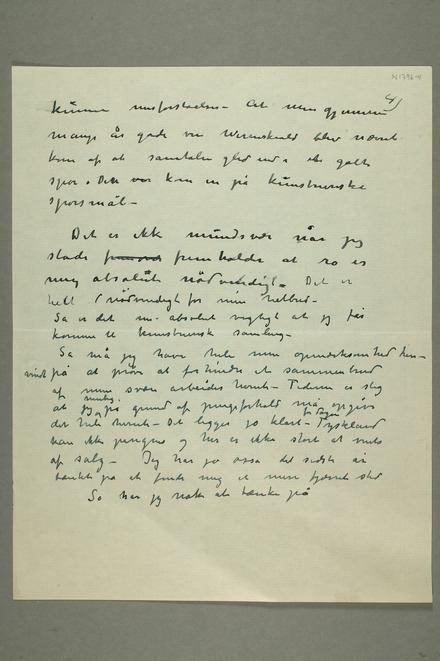 N 1796-4
4)
kunne misforståelse – At min gjennem
mange år gode ven Werenskiold blev nævnt
kom af at samtalen gled ind i et galt
spor. Den var kom in på kunstneriske
spørsmål –
Det er ikke mundsvær når jeg
stadi fremholder at ro er
mig absolut nødvendigt. Det er
helt nødvendigt for min helbred –
Så er det absolut vigtigt at jeg får
komme til kunstnerisk samling –
Så må jeg have hele min opmerksomhed hen-
vendt på at prøve at forhindre et sammenbrud
af min svære arbeides Tiderne er slig
at jeg muligens på grund af pengeforhold må opgive
det hele Det ligger jo klart – Tyskland
kan ikke og her er ikke stort at vente
af salg – Jeg har jo også det sidste år
tænkt på at finde mig et mere fjernt sted
Så har jeg nok at tænke på